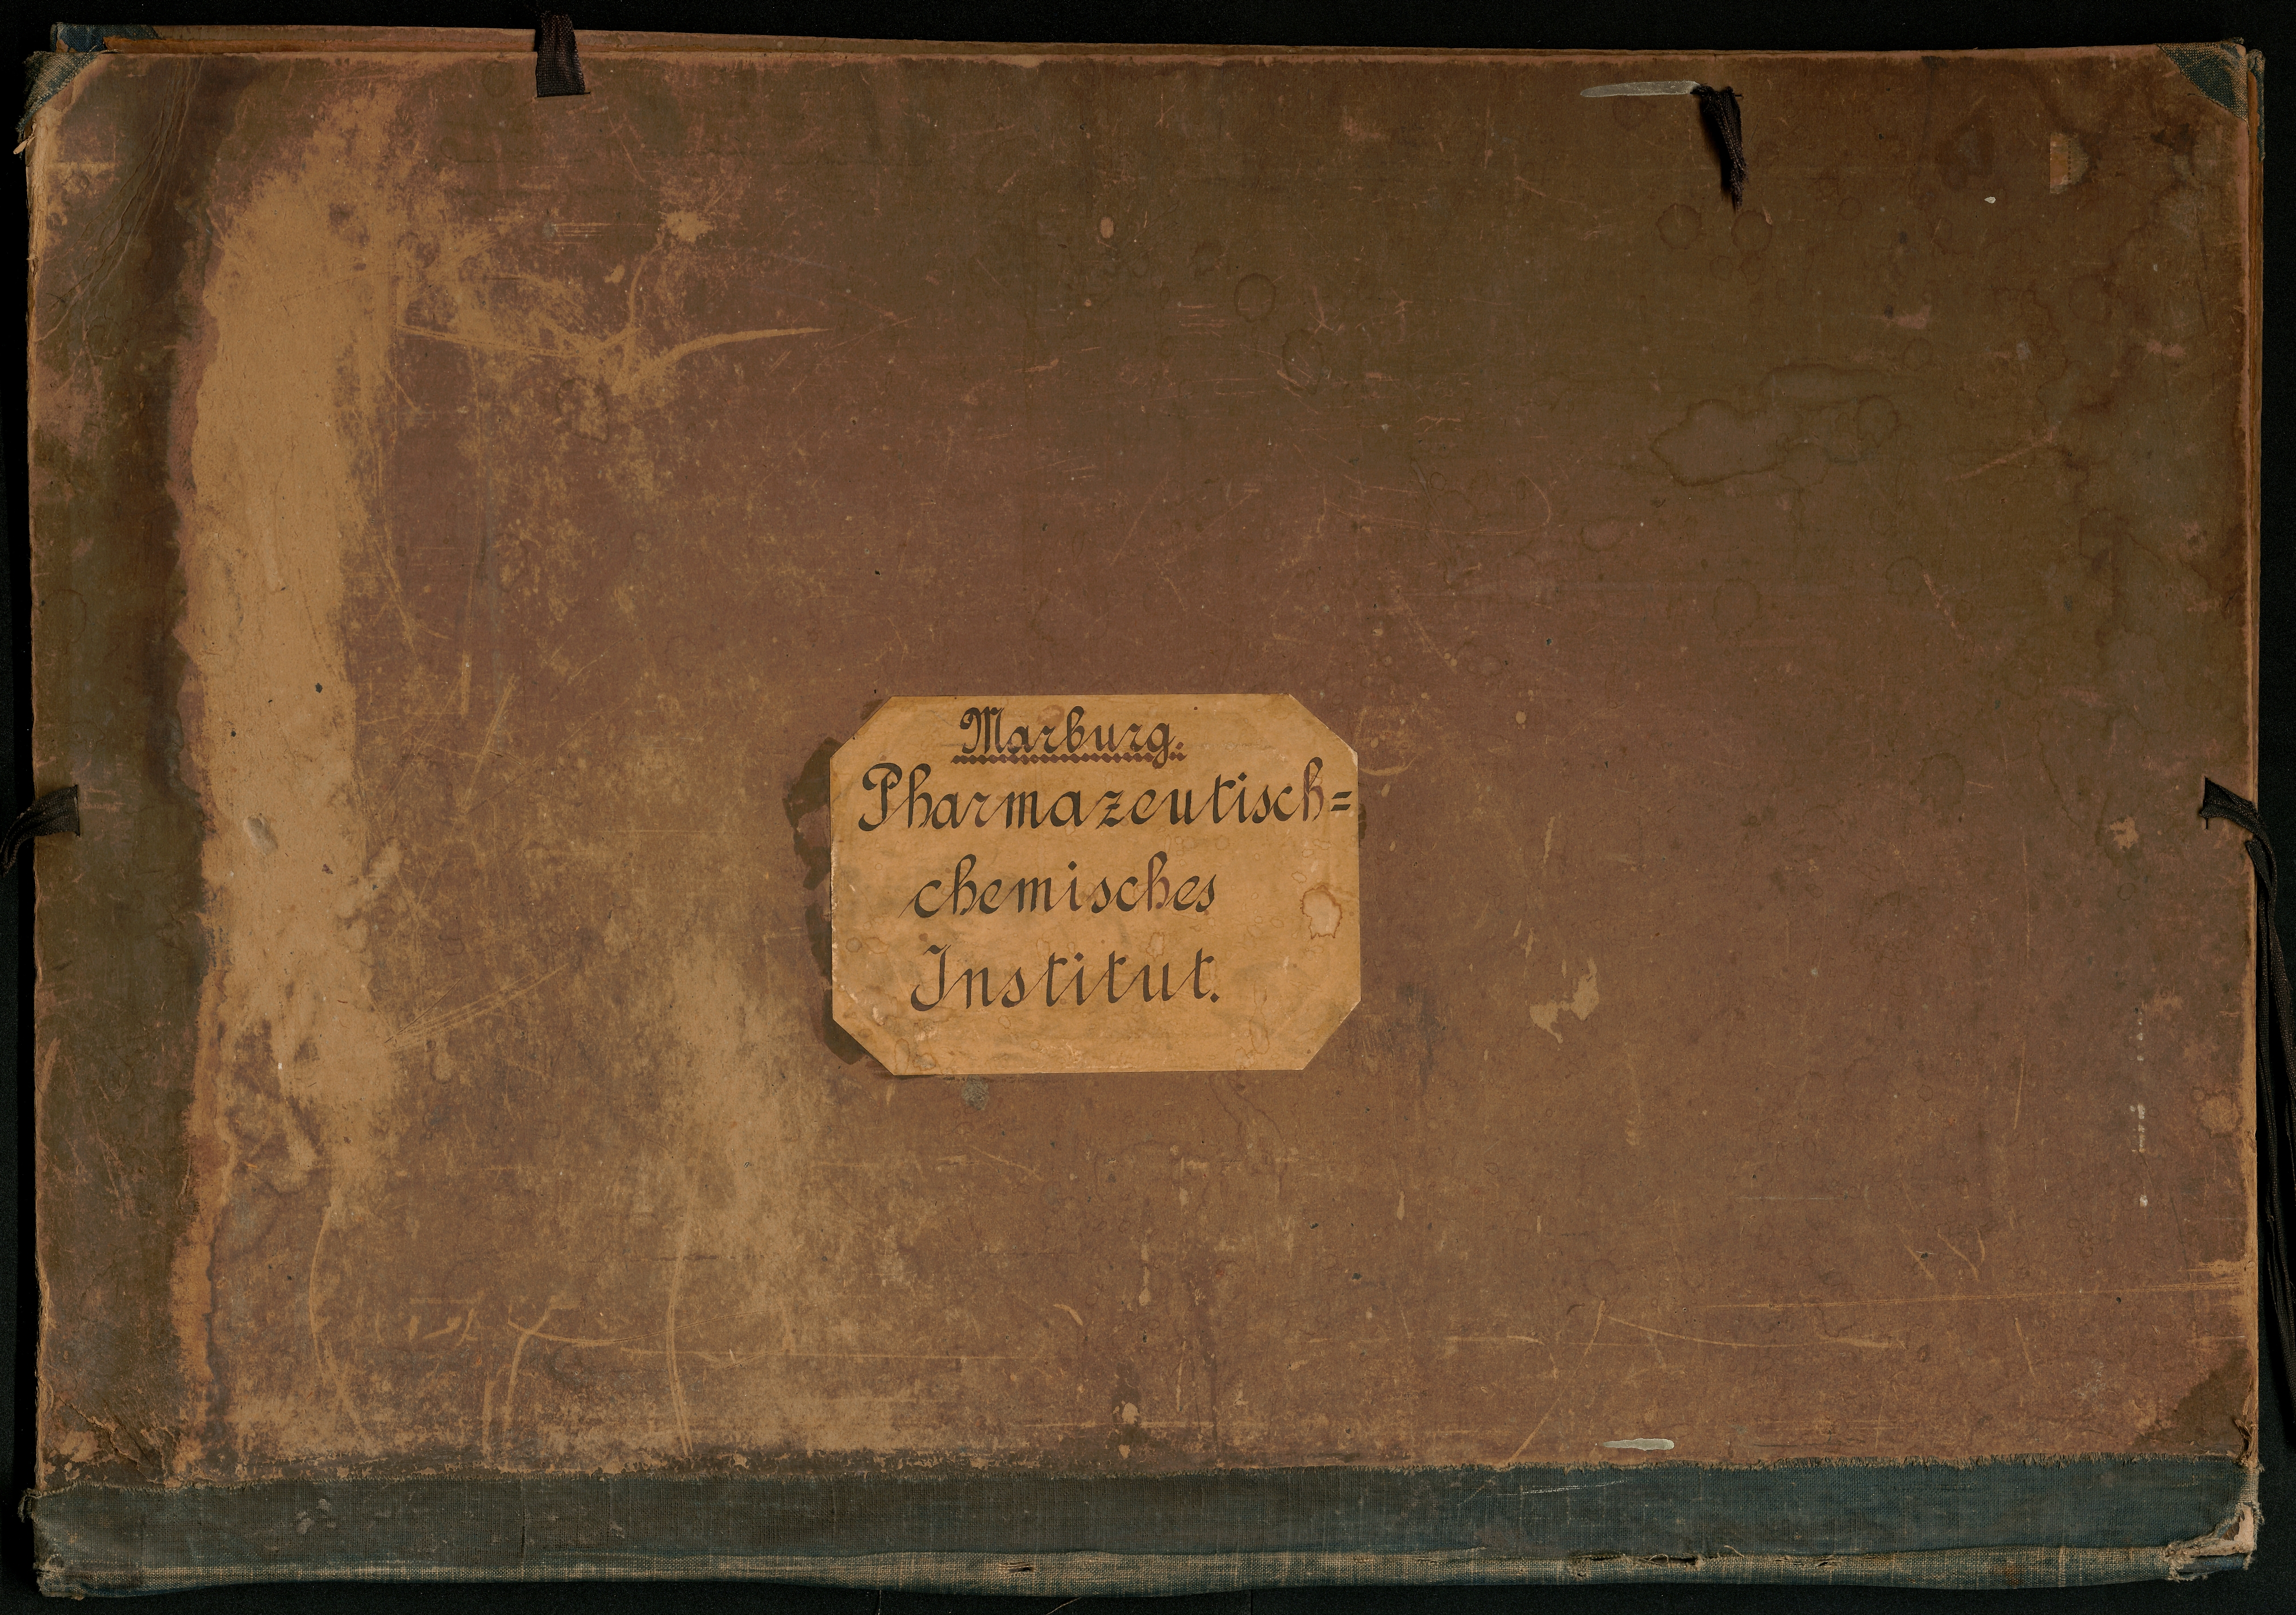 Marburg.
Pharmazeutisch=
chemisches
Institut.